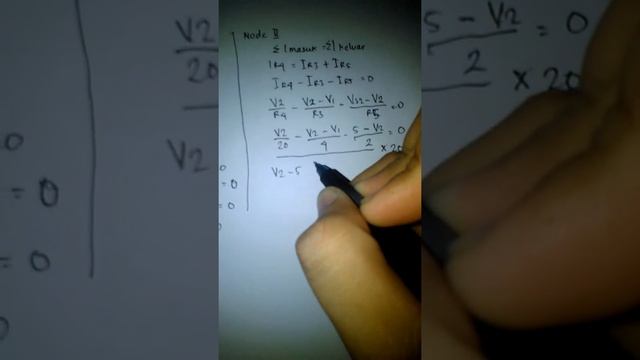 Node II
Σ I masuk = Σ I keluar
IR4 = IR3 + IR5
IR4 - IR3 - IR5 = 0
V2/R4 - V2 - V1/R3 - VS2 - V2/R5 = 0
V2/20 - V2 - V1/4 - 5 - V2/2 = 0
× 20
V2 - 5